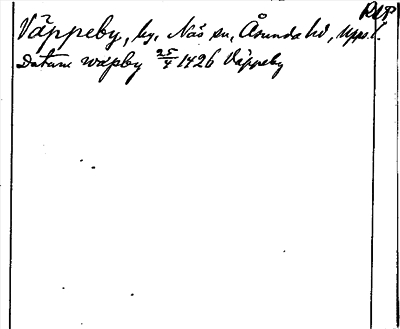 RAP
Väppeby, by, Näs sn, Åsunda hd, Upps. l.
Datum wæpby 25/4 1426 Väppeby